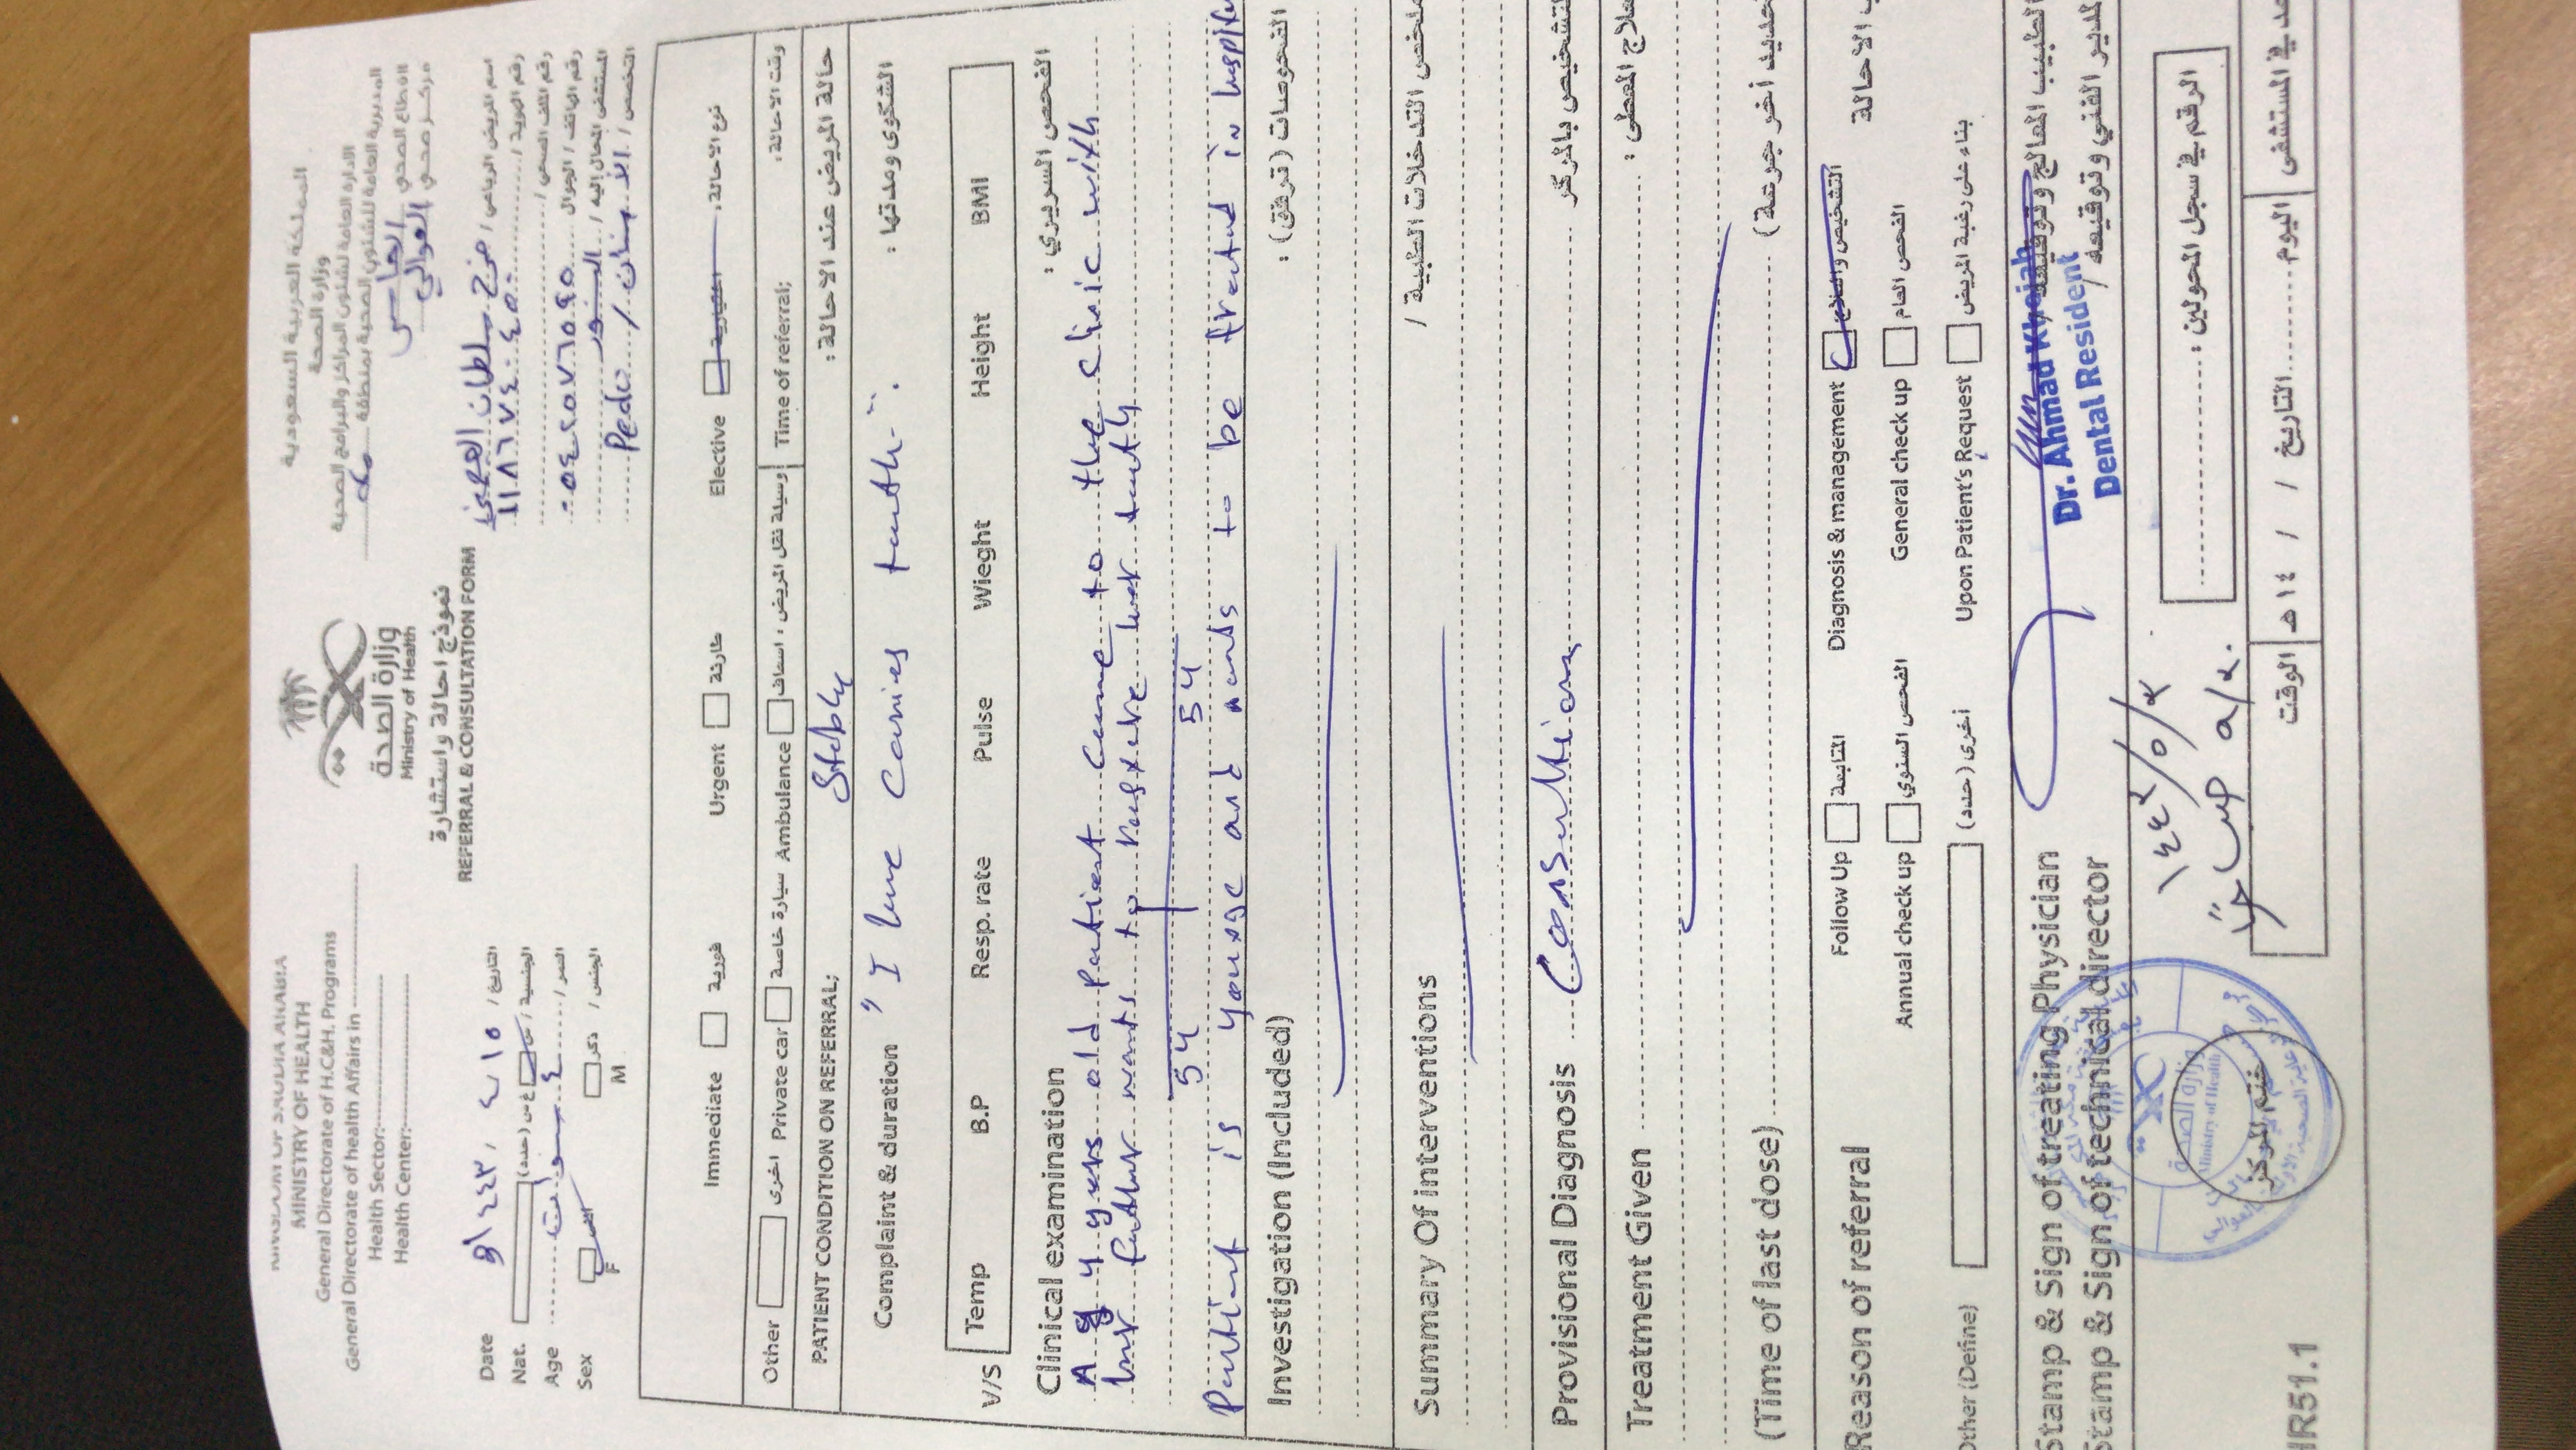 KINGDOM OF SAUDIA ARABIA
MINISTRY OF HEALTH
General Directorate of H.C&H. Programs
General Directorate of health Affairs in
Health Sector:
Health Center:
وزارة الصحة
Ministry of Health
نموذج احالة واستشارة
REFERRAL & CONSULTATION FORM
المملكة العربية السعودية
وزارة الصحة
الادارة العامة لشئون المراكز والبرامج الصحية
المديرية العامة للشئون الصحية بمنطقة
القطاع الصحي
مركز صحي العوالي
Date ١٥ / ٤ / ١٤٤٣ التاريخ /
Nat. (حدد) غ س س / الجنسية
Age ٤ سنوات العمر /
Sex F انثى M ذكر / الجنس
اسم المريض الرباعي / سلطان
رقم الهوية /
رقم الملف الصحي /
رقم الهاتف / الجوال
المستشفى المحال إليه / النور
التخصص / الأسنان / Pedo
Immediate فورية Urgent طارئة Elective اختيارية نوع الاحالة:
Other اخرى Private car سيارة خاصة Ambulance وسيلة نقل المريض : اسعاف Time of referral; وقت الاحالة:
PATIENT CONDITION ON REFERRAL; Stable حالة المريض عند الاحالة :
Complaint & duration "I have caries teeth". الشكوى ومدتها :
V/S Temp B.P Resp. rate Pulse Wieght Height BMI
Clinical examination الفحص السريري :
A 4 years old patient came to the clinic with
her father wants to restore her teeth
54 54
Patient is and wants to be treated in
Investigation (Included) الفحوصات (ترفق) :
Summary Of interventions ملخص التدخلات الطبية /
Provisional Diagnosis التشخيص بالمركز
Treatment Given العلاج المعطى :
(Time of last dose) تحديد أخر جرعة)
Reason of referral Follow Up المتابعة Diagnosis & management التشخيص والعلاج الاحالة
Annual check up الفحص السنوي General check up الفحص العام
Other (Define) أخرى (حدد) Upon Patient's Request بناء على رغبة المريض
Stamp & Sign of treating Physician الطبيب المعالج وتوقيعه
Dr. Ahmad Khojah
Dental Resident
Stamp & Sign of technical director المدير الفني وتوقيعه /
وزارة الصحة
Ministry of Health
ختم المركز
١٤٤٣/٥/٣
٩/٣٠ صباحًا
الرقم في سجل المحولين :
المستشفى اليوم التاريخ / / ١٤هـ الوقت
HR51.1